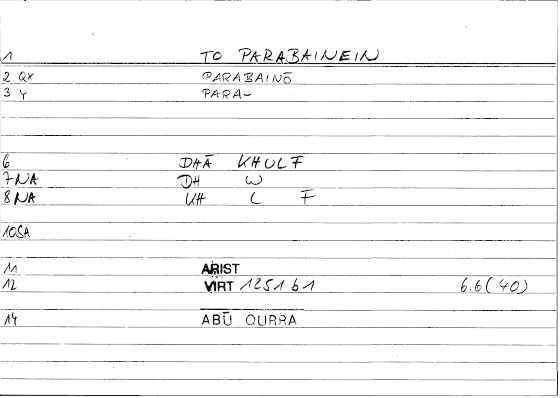 1 TO PARABAINEIN
2 QX PARABAINŌ
3 Y PARA-
6 DHĀ KHULF
7 NA DH W
8 NA KH L F
10 SA
11 ARIST
12 VIRT 1251 b1 6.6(40)
14 ABŪ QURRA